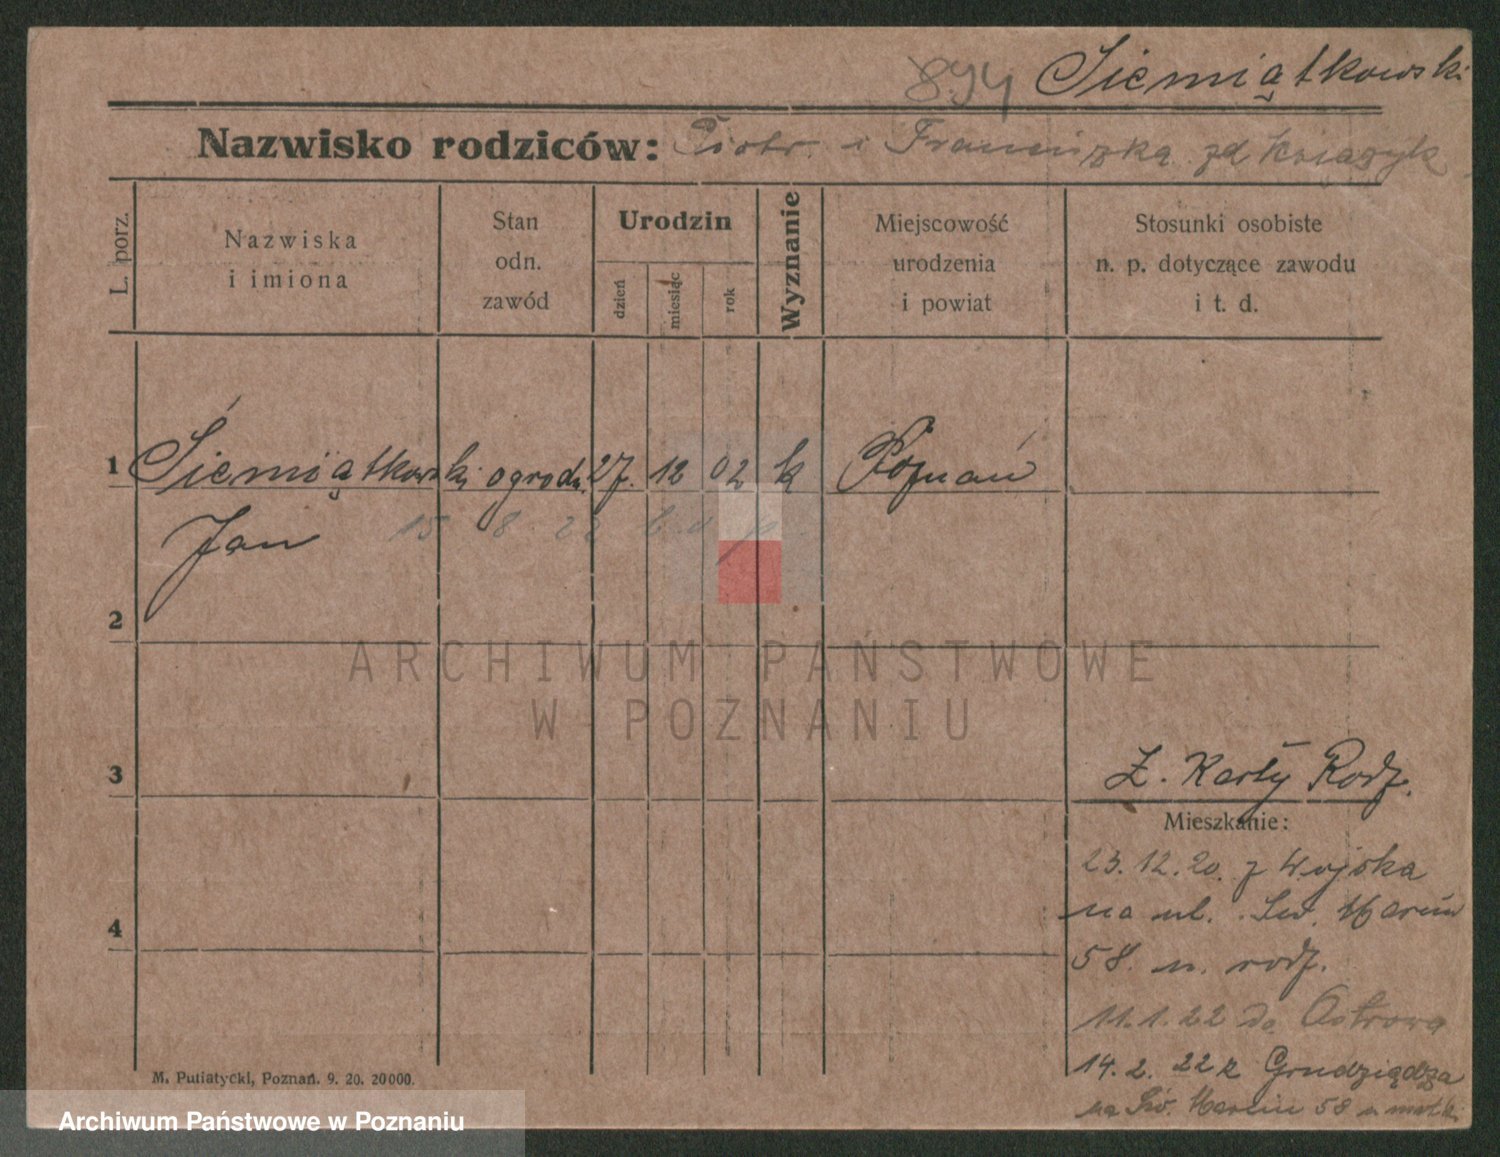 894 Siemiątkowski
Nazwisko rodziców: Piotr i Franciszka zd
L. porz.
Nazwiska
i imiona
Stan
odn.
zawód
Urodzin
dzień
miesiąc
rok
Wyznanie
Miejscowość
urodzenia
i powiat
Stosunki osobiste
n. p. dotyczące zawodu
i t. d.
1 Siemiątkowski ogrodn. 27. 12 02 k Poznań
Jan 15 8 22
2
ARCHIWUM PAŃSTWOWE
W POZNANIU
3
Z. Karty Rodz.
Mieszkanie:
23.12.20. z Wojska
na ul. Św. Marcin
4
58. u. rodz.
11.1.22 do Ostrowa
14.2.22 z Grudziądza
na Św. Marcin 58 u matki
M. Putiatycki, Poznań. 9. 20. 20000.
Archiwum Państwowe w Poznaniu